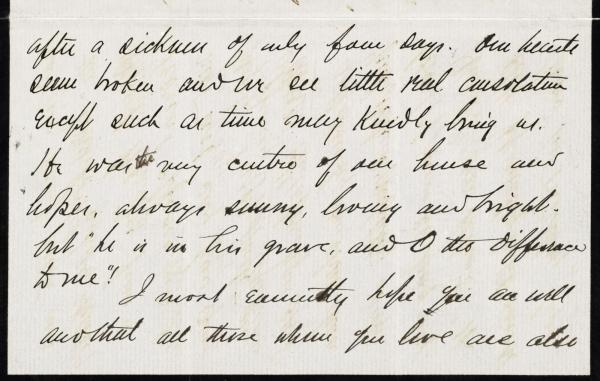 after a sickness of only four days. Our hearts
seem broken and we see little real consolation
except such as time may kindly bring us.
He was the very centre of our house and
hopes, always sunny, loving and bright.
but "he is in his grave, and O the difference
to me"!
I most earnestly hope you are well
and that all those whom you love are also